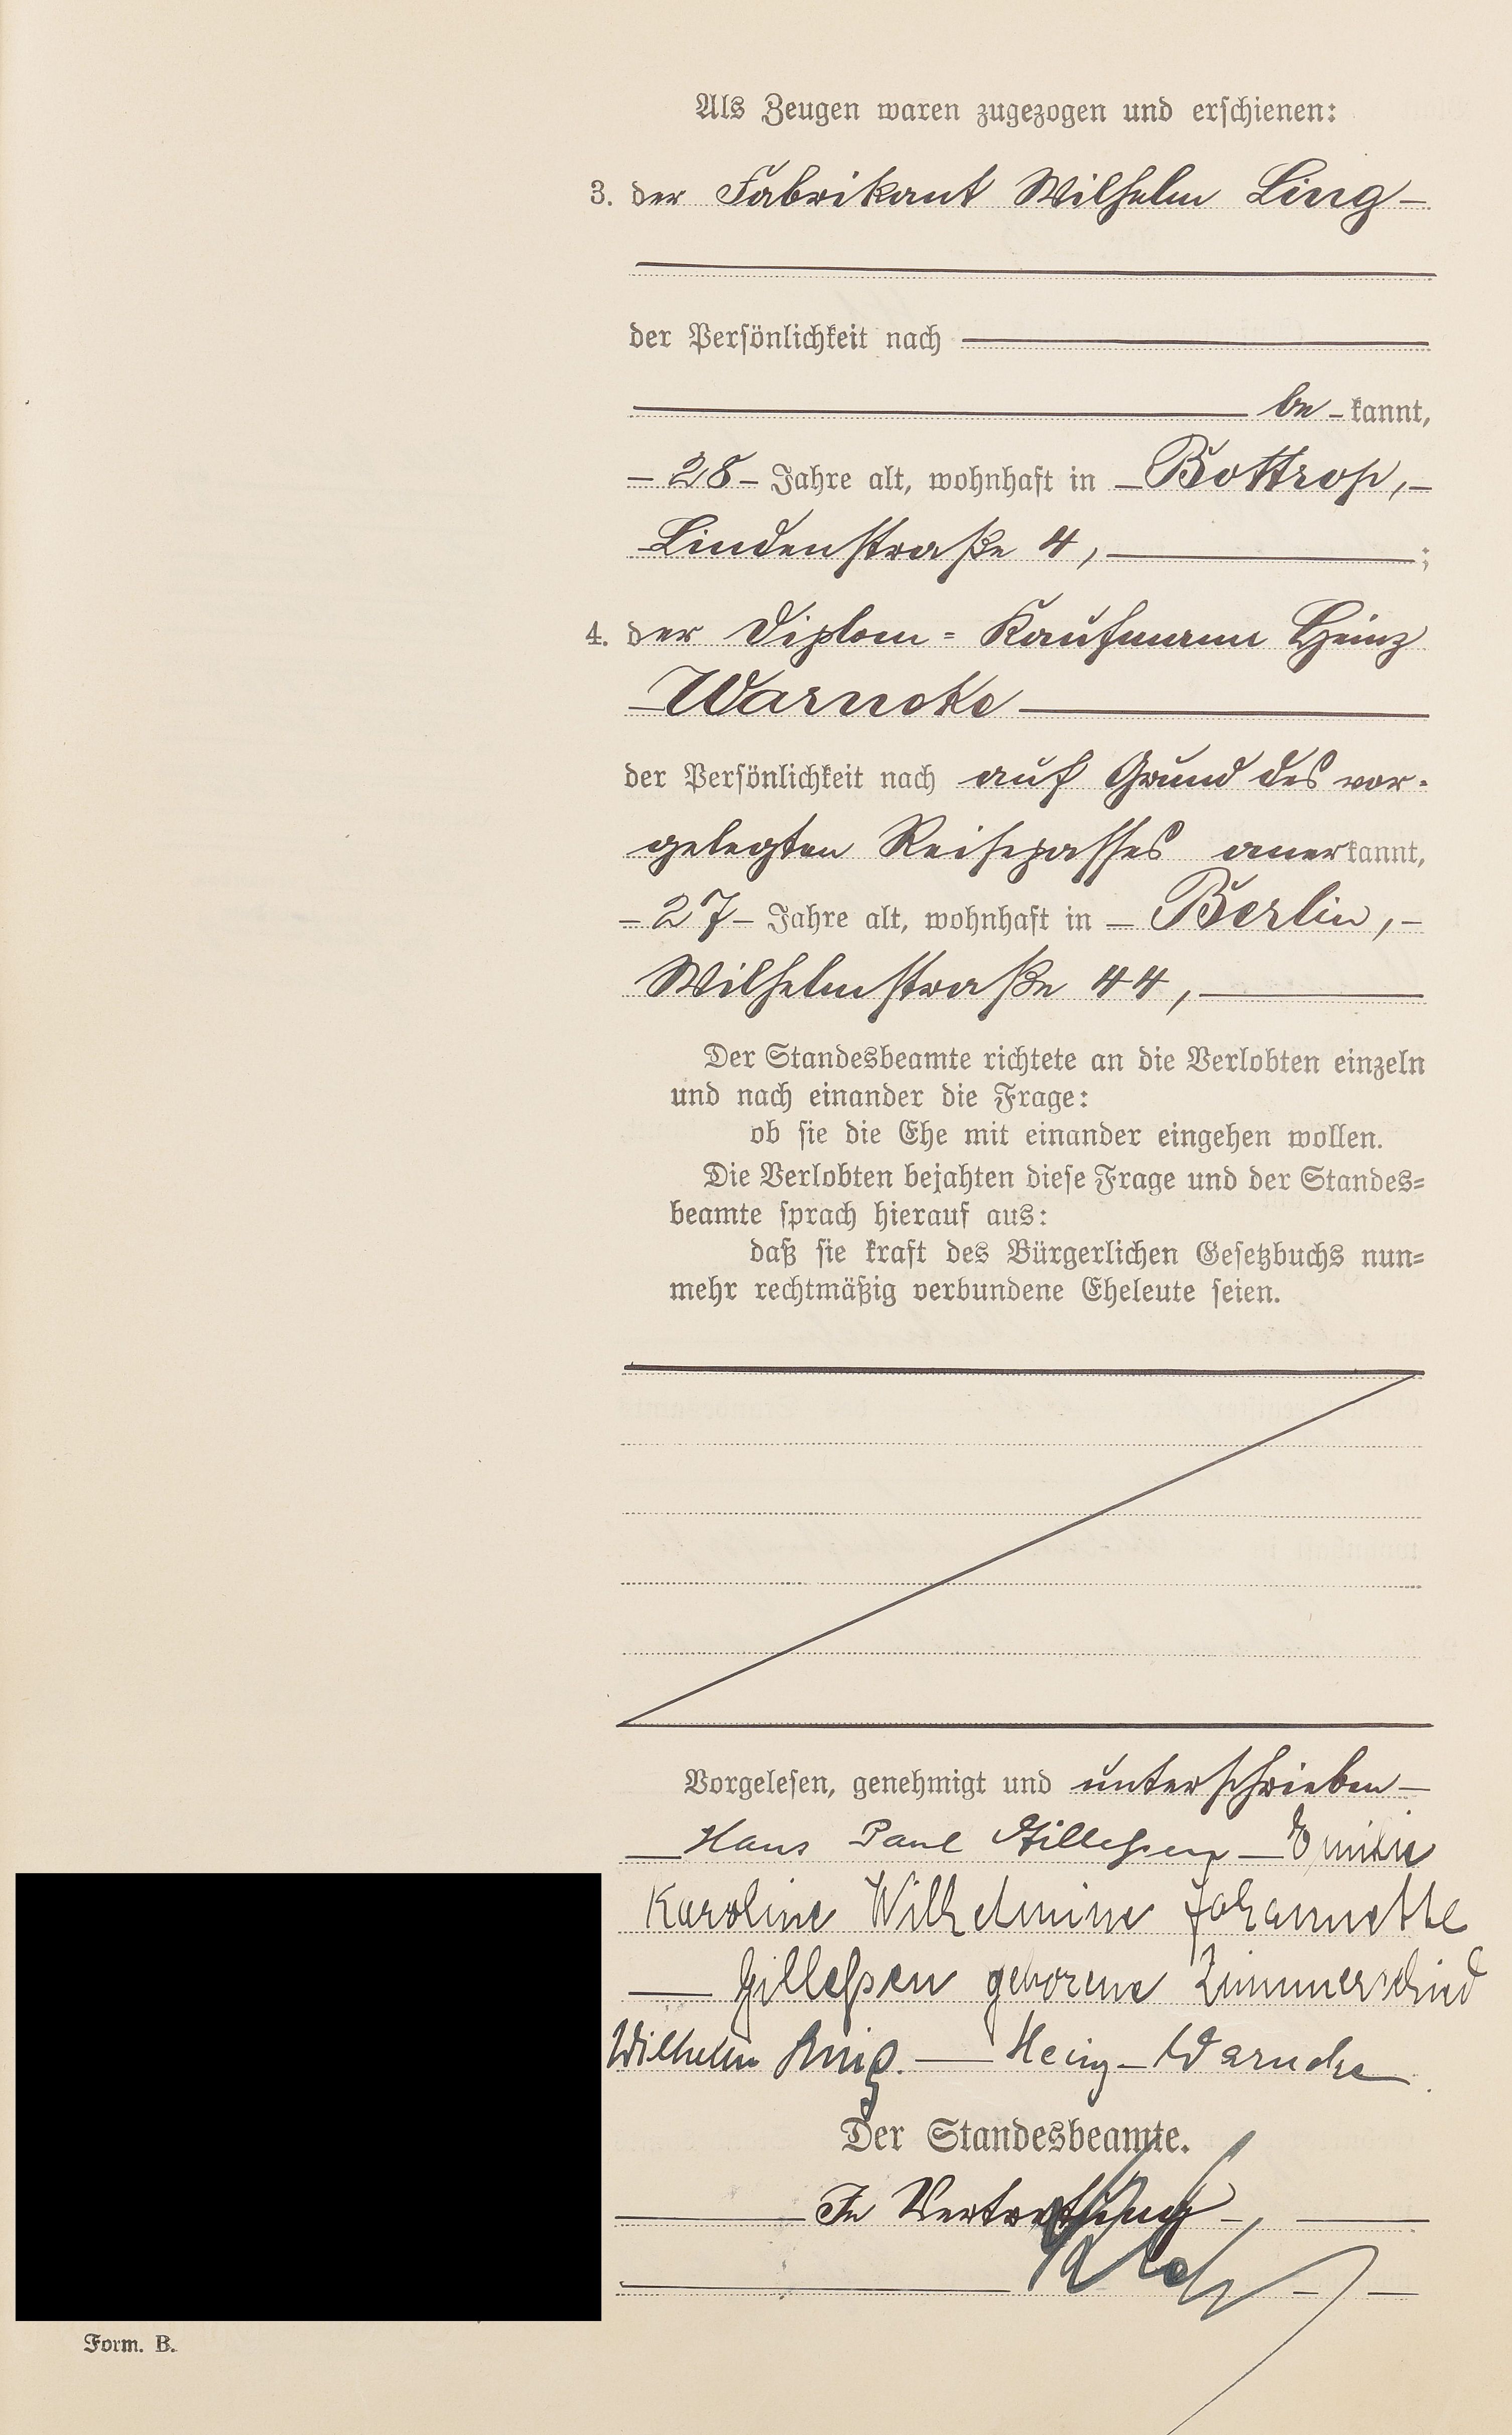 Als Zeugen waren zugezogen und erschienen:
3. der Fabrikant Wilhelm Ling –
der Persönlichkeit nach
be – kannt,
– 28 – Jahre alt, wohnhaft in – Bottrop, –
Lindenstraße 4, ;
4. der Diplom = Kaufmann Heinz
Warneke
der Persönlichkeit nach auf Grund des vor-
gelegten Reisepasses anerkannt,
– 27 – Jahre alt, wohnhaft in – Berlin, –
Wilhelmstraße 44,
Der Standesbeamte richtete an die Verlobten einzeln
und nach einander die Frage:
ob sie die Ehe mit einander eingehen wollen.
Die Verlobten bejahten diese Frage und der Standes=
beamte sprach hierauf aus:
daß sie kraft des Bürgerlichen Gesetzbuchs nun=
mehr rechtmäßig verbundene Eheleute seien.
Vorgelesen, genehmigt und unterschrieben –
Hans Paul Gilleßen – Emilie
Karoline Wilhelmine Johannette
Gilleßen geborene Zimmerschied
Wilhelm – Heinz – Warneke
Der Standesbeamte.
In Vertretung
Form. B.